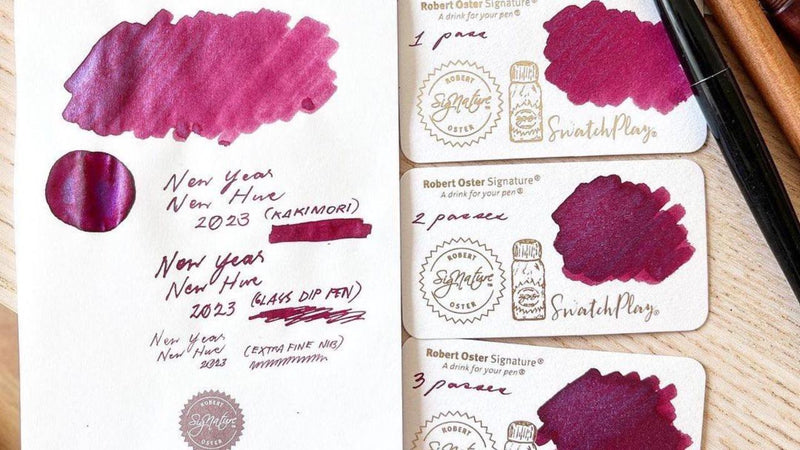 New Year
New Hue
2023 (KAKIMORI)
New Year
New Hue
2023 (GLASS DIP PEN)
New Year
New Hue (EXTRA FINE NIB)
2023
ROBERT
Signature
OSTER
Robert Oster Signature®
A drink for your pen®
1 pass
ROBERT
Signature
OSTER
SwatchPlay®
Robert Oster Signature®
A drink for your pen®
2 passes
ROBERT
Signature
OSTER
SwatchPlay®
Robert Oster Signature®
A drink for your pen®
3 passes
ROBERT
Signature
SwatchPlay